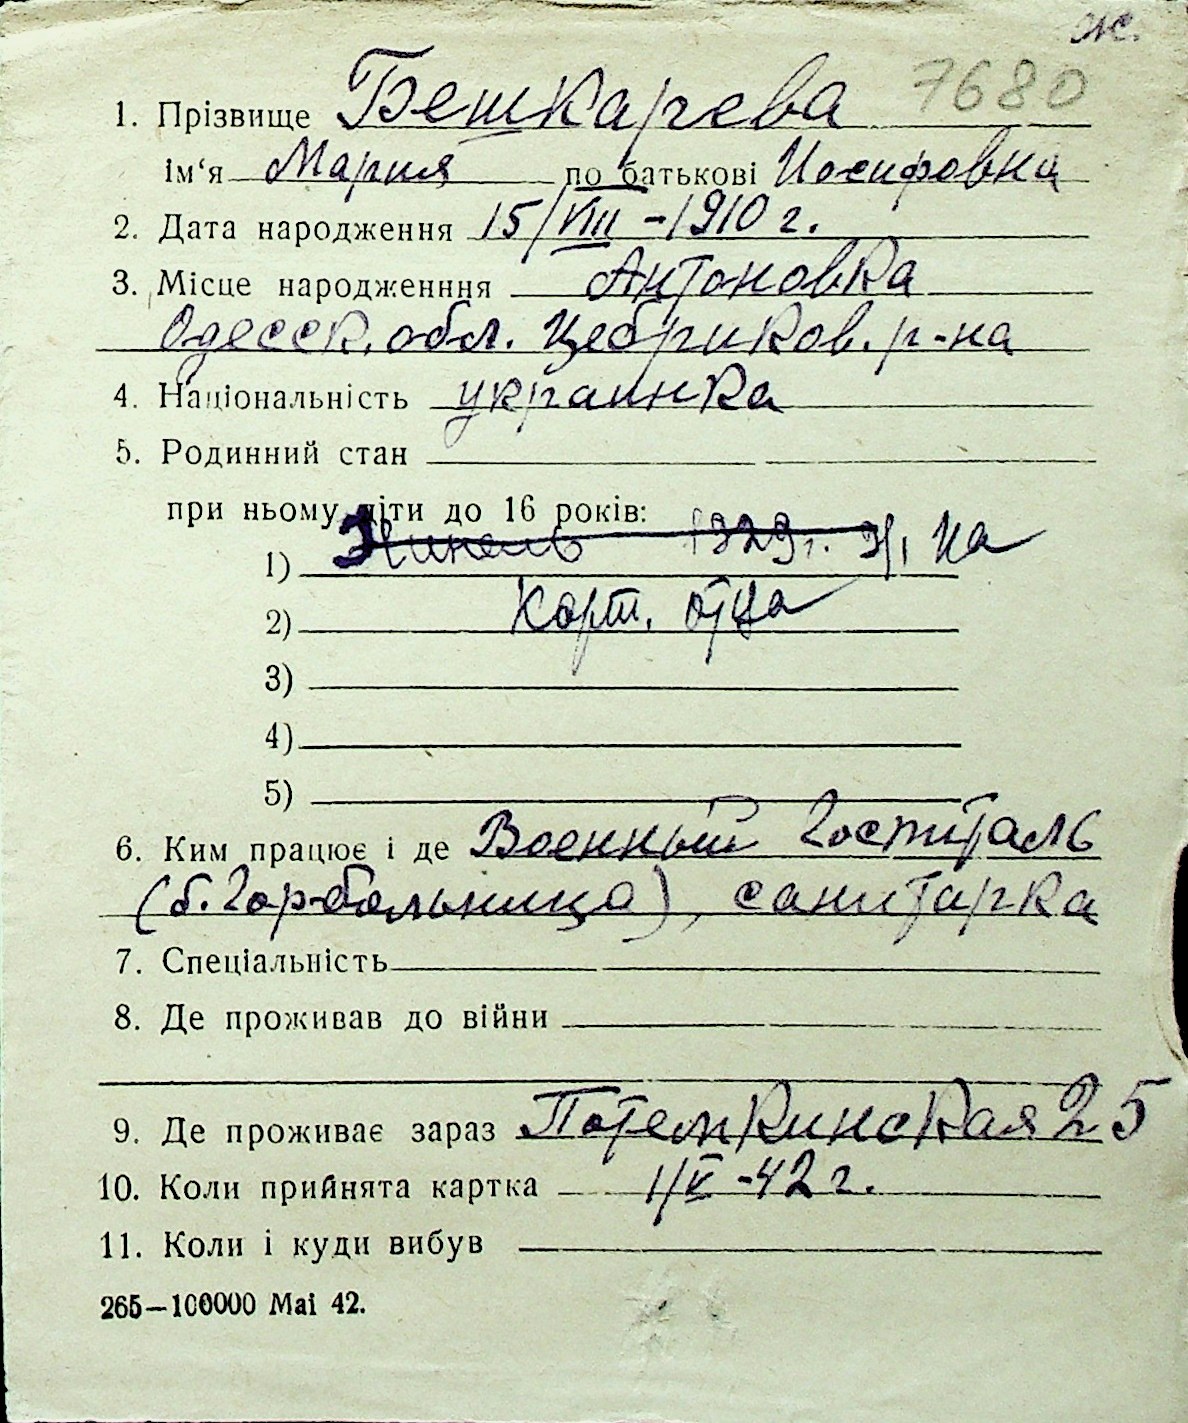 ж.
7680
1. Прізвище Бешкарева
ім‘я Мария по батькові Иосифовна
2. Дата народження 15/VIII - 1910 г.
3. Місце народженння Антоновка
Одесск. обл. Цебриков. р-на
4. Національність украинка
5. Родинний стан
при ньому діти до 16 років:
1) Нинель 1929 г. ж. на
2) карт. отца
3)
4)
5)
6. Ким працює і де Военный госпиталь
(б. Гор-больница), санитарка
7. Спеціальність
8. Де проживав до війни
9. Де проживає зараз Потемкинская 25
10. Коли прийнята картка 1/V - 42 г.
11. Коли і куди вибув
265—100000 Mai 42.